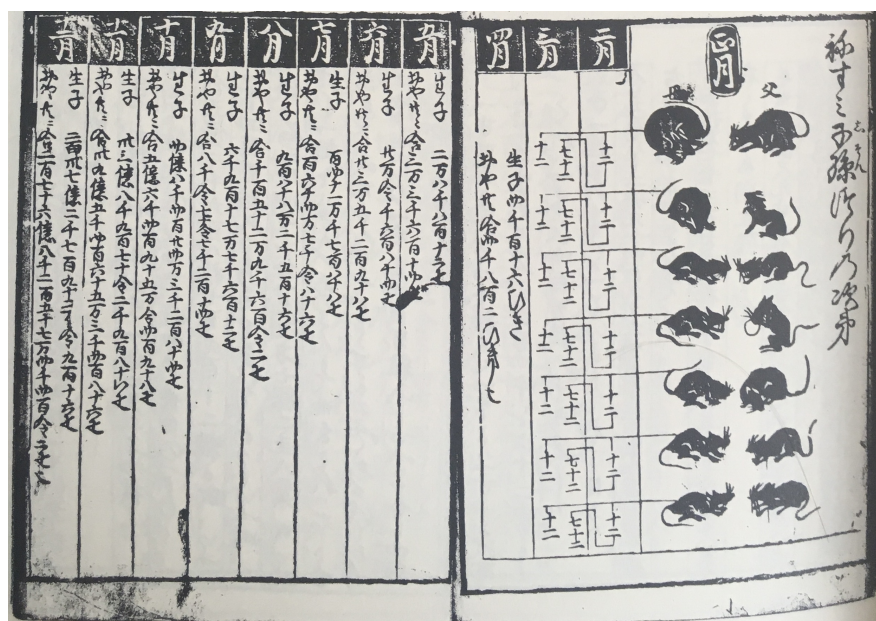 正月
父
母
二月
十二
十二
十二
十二
十二
十二
十二
七十二
七十二
七十二
七十二
七十二
七十二
七十二
三月
十二
十二
十二
十二
十二
十二
十二
四月
生子四千百十六ひき
おや共ニ合四千八百二ひき也
五月
生子 二万八千八百十二疋
おや共ニ合三万三千六百十四疋
六月
生子 廿万令千六百八十四疋
おや共ニ合廿三万五千二百九十八疋
七月
生子 百四十一万千七百八十八疋
おや共ニ合百六十四万七千令八十六疋
八月
生子 九百八十八万二千五百十六疋
おや共ニ合千百五十二万九千六百令二疋
九月
生子 六千九百十七万七千六百十二疋
おや共ニ合八千令七十万七千二百十四疋
十月
生子 四億八千四百廿四万三千二百八十四疋
おや共ニ合五億六千四百九十五万令四百九十八疋
十一月
生子 卅三億八千九百七十万二千九百八十八疋
おや共ニ合卅九億五千四百六十五万三千四百八十六疋
十二月
生子 二百卅七億二千七百九十二万令九百十六疋
おや共ニ合二百七十六億八千二百五十七万四千四百令二疋也